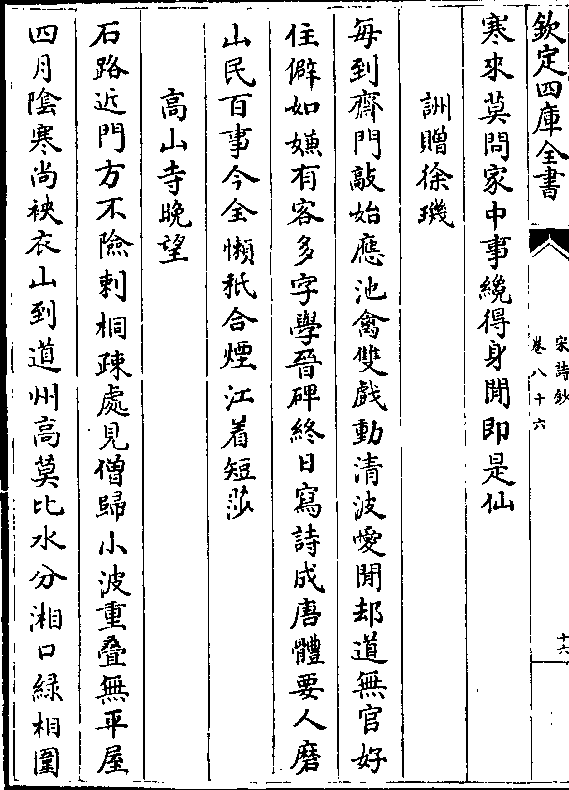 欽定四庫全書
宋詩鈔
卷八十六
十六
寒來莫問家中事纔得身閒即是仙
詶贈徐璣
每到齋門敲始應池禽雙戲動清波愛閒却道無官好
住僻如嫌有客多字學晉碑終日寫詩成唐體要人磨
山民百事今全懶秪合煙江着短莎
高山寺晚望
石路近門方不險刺桐疎處見僧歸小波重疊無平屋
四月陰寒尚袂衣山到道州高莫比水分湘口綠相圍